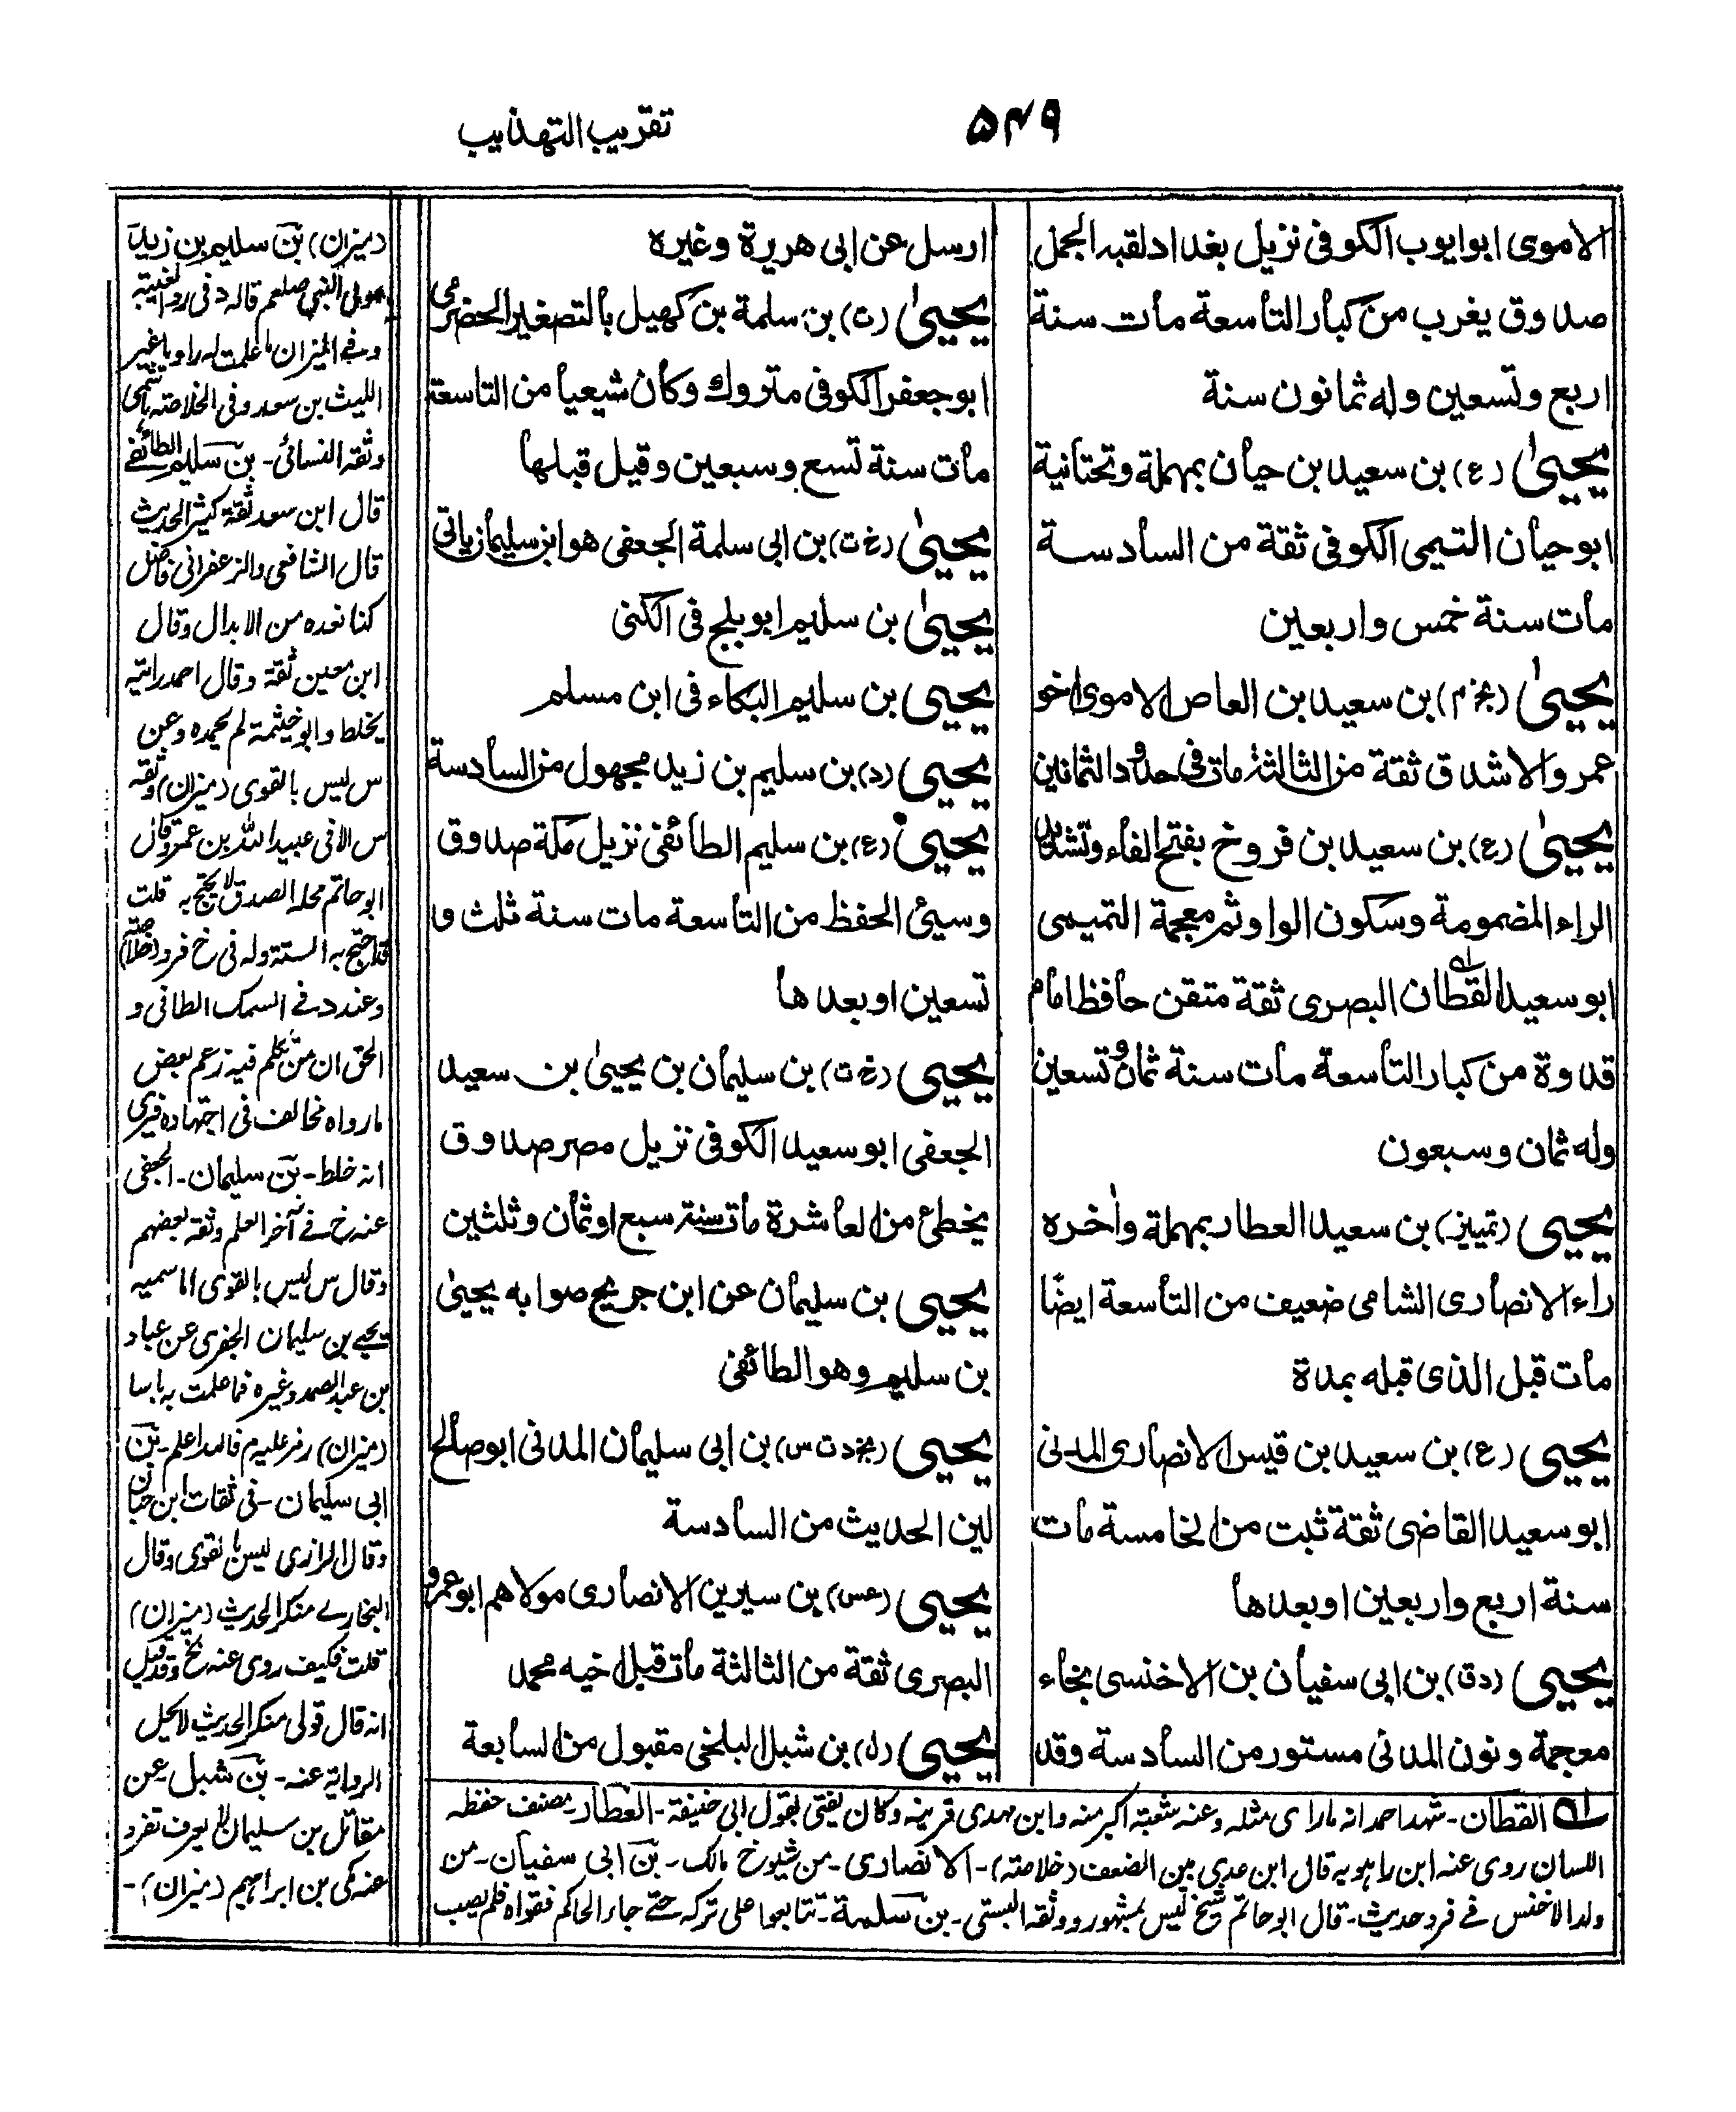 ۵۴۹
تقريب التهذيب
الاموى ابو ايوب الكوفى نزيل بغداد لقبه الجمل
صدوق يغرب من كبار التاسعة مات سنة
اربع وتسعين وله ثمانون سنة
يحيىٰ (ع) بن سعيد بن حيان بمهملة وتحتانية
ابو حيان التيمى الكوفى ثقة من السادسة
مات سنة خمس واربعين
يحيىٰ (بخ م) بن سعيد بن العاص الاموى اخو
عمرو الاشدق ثقة من الثالثة مات فى حدود الثمانين
يحيىٰ (ع) بن سعيد بن فروخ بفتح الفاء وتشديد
الراء المضمومة وسكون الواو ثم معجمة التميمى
ابو سعيد القطان البصرى ثقة متقن حافظ امام
قدوة من كبار التاسعة مات سنة ثمان وتسعين
وله ثمان وسبعون
يحيى (تمييز) بن سعيد العطار بمهملة واٰخره
راء الانصارى الشامى ضعيف من التاسعة ايضًا
مات قبل الذى قبله بمدة
يحيى (ع) بن سعيد بن قيس الانصارى المدنى
ابو سعيد القاضى ثقة ثبت من الخامسة مات
سنة اربع واربعين او بعدها
يحيى (د ق) بن ابى سفيان بن الاخنسى بخاء
معجمة ونون المدنى مستور من السادسة وقد
ارسل عن ابى هريرة وغيره
يحيىٰ (ت) بن سلمة بن كهيل بالتصغير الحضرمى
ابو جعفر الكوفى متروك وكان شيعيا من التاسعة
مات سنة تسع وسبعين وقيل قبلها
يحيىٰ (خ ت) بن ابى سلمة الجعفى هو ابن سليمان ياتى
يحيىٰ بن سليم ابو بلج فى الكنى
يحيى بن سليم البكاء فى ابن مسلم
يحيى (د) بن سليم بن زيد مجهول من السادسة
يحيى (ع) بن سليم الطائفى نزيل مكة صدوق
وسيئ الحفظ من التاسعة مات سنة ثلث و
تسعين او بعدها
يحيى (خ ت) بن سليمان بن يحيىٰ بن سعيد
الجعفى ابو سعيد الكوفى نزيل مصر صدوق
يخطئ من العاشرة مات سنة سبع او ثمان وثلثين
يحيى بن سليمان عن ابن جريج صوابه يحيىٰ
بن سليم وهو الطائفى
يحيى (بخ د ت س) بن ابى سليمان المدنى ابو صالح
لين الحديث من السادسة
يحيى (عس) بن سيرين الانصارى مولاهم ابو عمرو
البصرى ثقة من الثالثة مات قبل اخيه محمد
يحيى (ل) بن شبل البلخى مقبول من السابعة
القطان - شهد احمد انه ما راى مثله وعنه شعبة اكبر منه وابن مهدى قرينه وكان يفتى بقول ابى حنيفة - العطار - مصنف حفظه
اللسان روى عنه ابن راهويه قال ابن عدى بين الضعف (خلاصة) - الانصارى - من شيوخ مالك - بن ابى سفيان - من
ولد الاخنس فى فرد حديث - قال ابو حاتم شيخ ليس بمشهور ووثقه البستى - بن سلمة - تتابعوا على تركه حتى جاء الحاكم فقواه فلم يصب
(ميزان) بن سليم بن زيد
مولى النبى صلعم قاله د فى رد الغيبة
وفى الميزان ما علمت له راويا غير
الليث بن سعد وفى الخلاصة
وثقه النسائى - بن سليم الطائفى
قال ابن سعد ثقة كثير الحديث
قال الشافعى والزعفرانى فاضل
كنا نعده من الابدال وقال
ابن معين ثقة وقال احمد رايته
يخلط وابو خيثمة لم يحمده وعن
س ليس بالقوى (ميزان) وثقه
س الا فى عبيد الله بن عمر وقال
ابو حاتم محله الصدق لا يحتج به قلت
قد احتج به الستة وله فى خ فرد (خلاصة)
وعند د فى السمك الطافى و
الحق ان من تكلم فيه زعم بعض
ما رواه مخالف فى اجتهاده فيرى
انه خلط - بن سليمان - الجعفى
عنه خ فى آخر العلم وثقه بعضهم
وقال س ليس بالقوى اما سميه
يحيى بن سليمان الجفرى عن عباد
بن عبد الصمد وغيره فما علمت به باسا
(ميزان) رمز عليه م فالله اعلم - بن
ابى سليمان - فى ثقات ابن حبان
وقال الرازى ليس بالقوى وقال
البخارى منكر الحديث (ميزان)
قلت فكيف روى عنه بخ وقد قيل
انه قال قولى منكر الحديث لا يحل
الرواية عنه - بن شبل عن
مقاتل بن سليمان لا يعرف تفرد
عنه مكى بن ابراهيم (ميزان) -